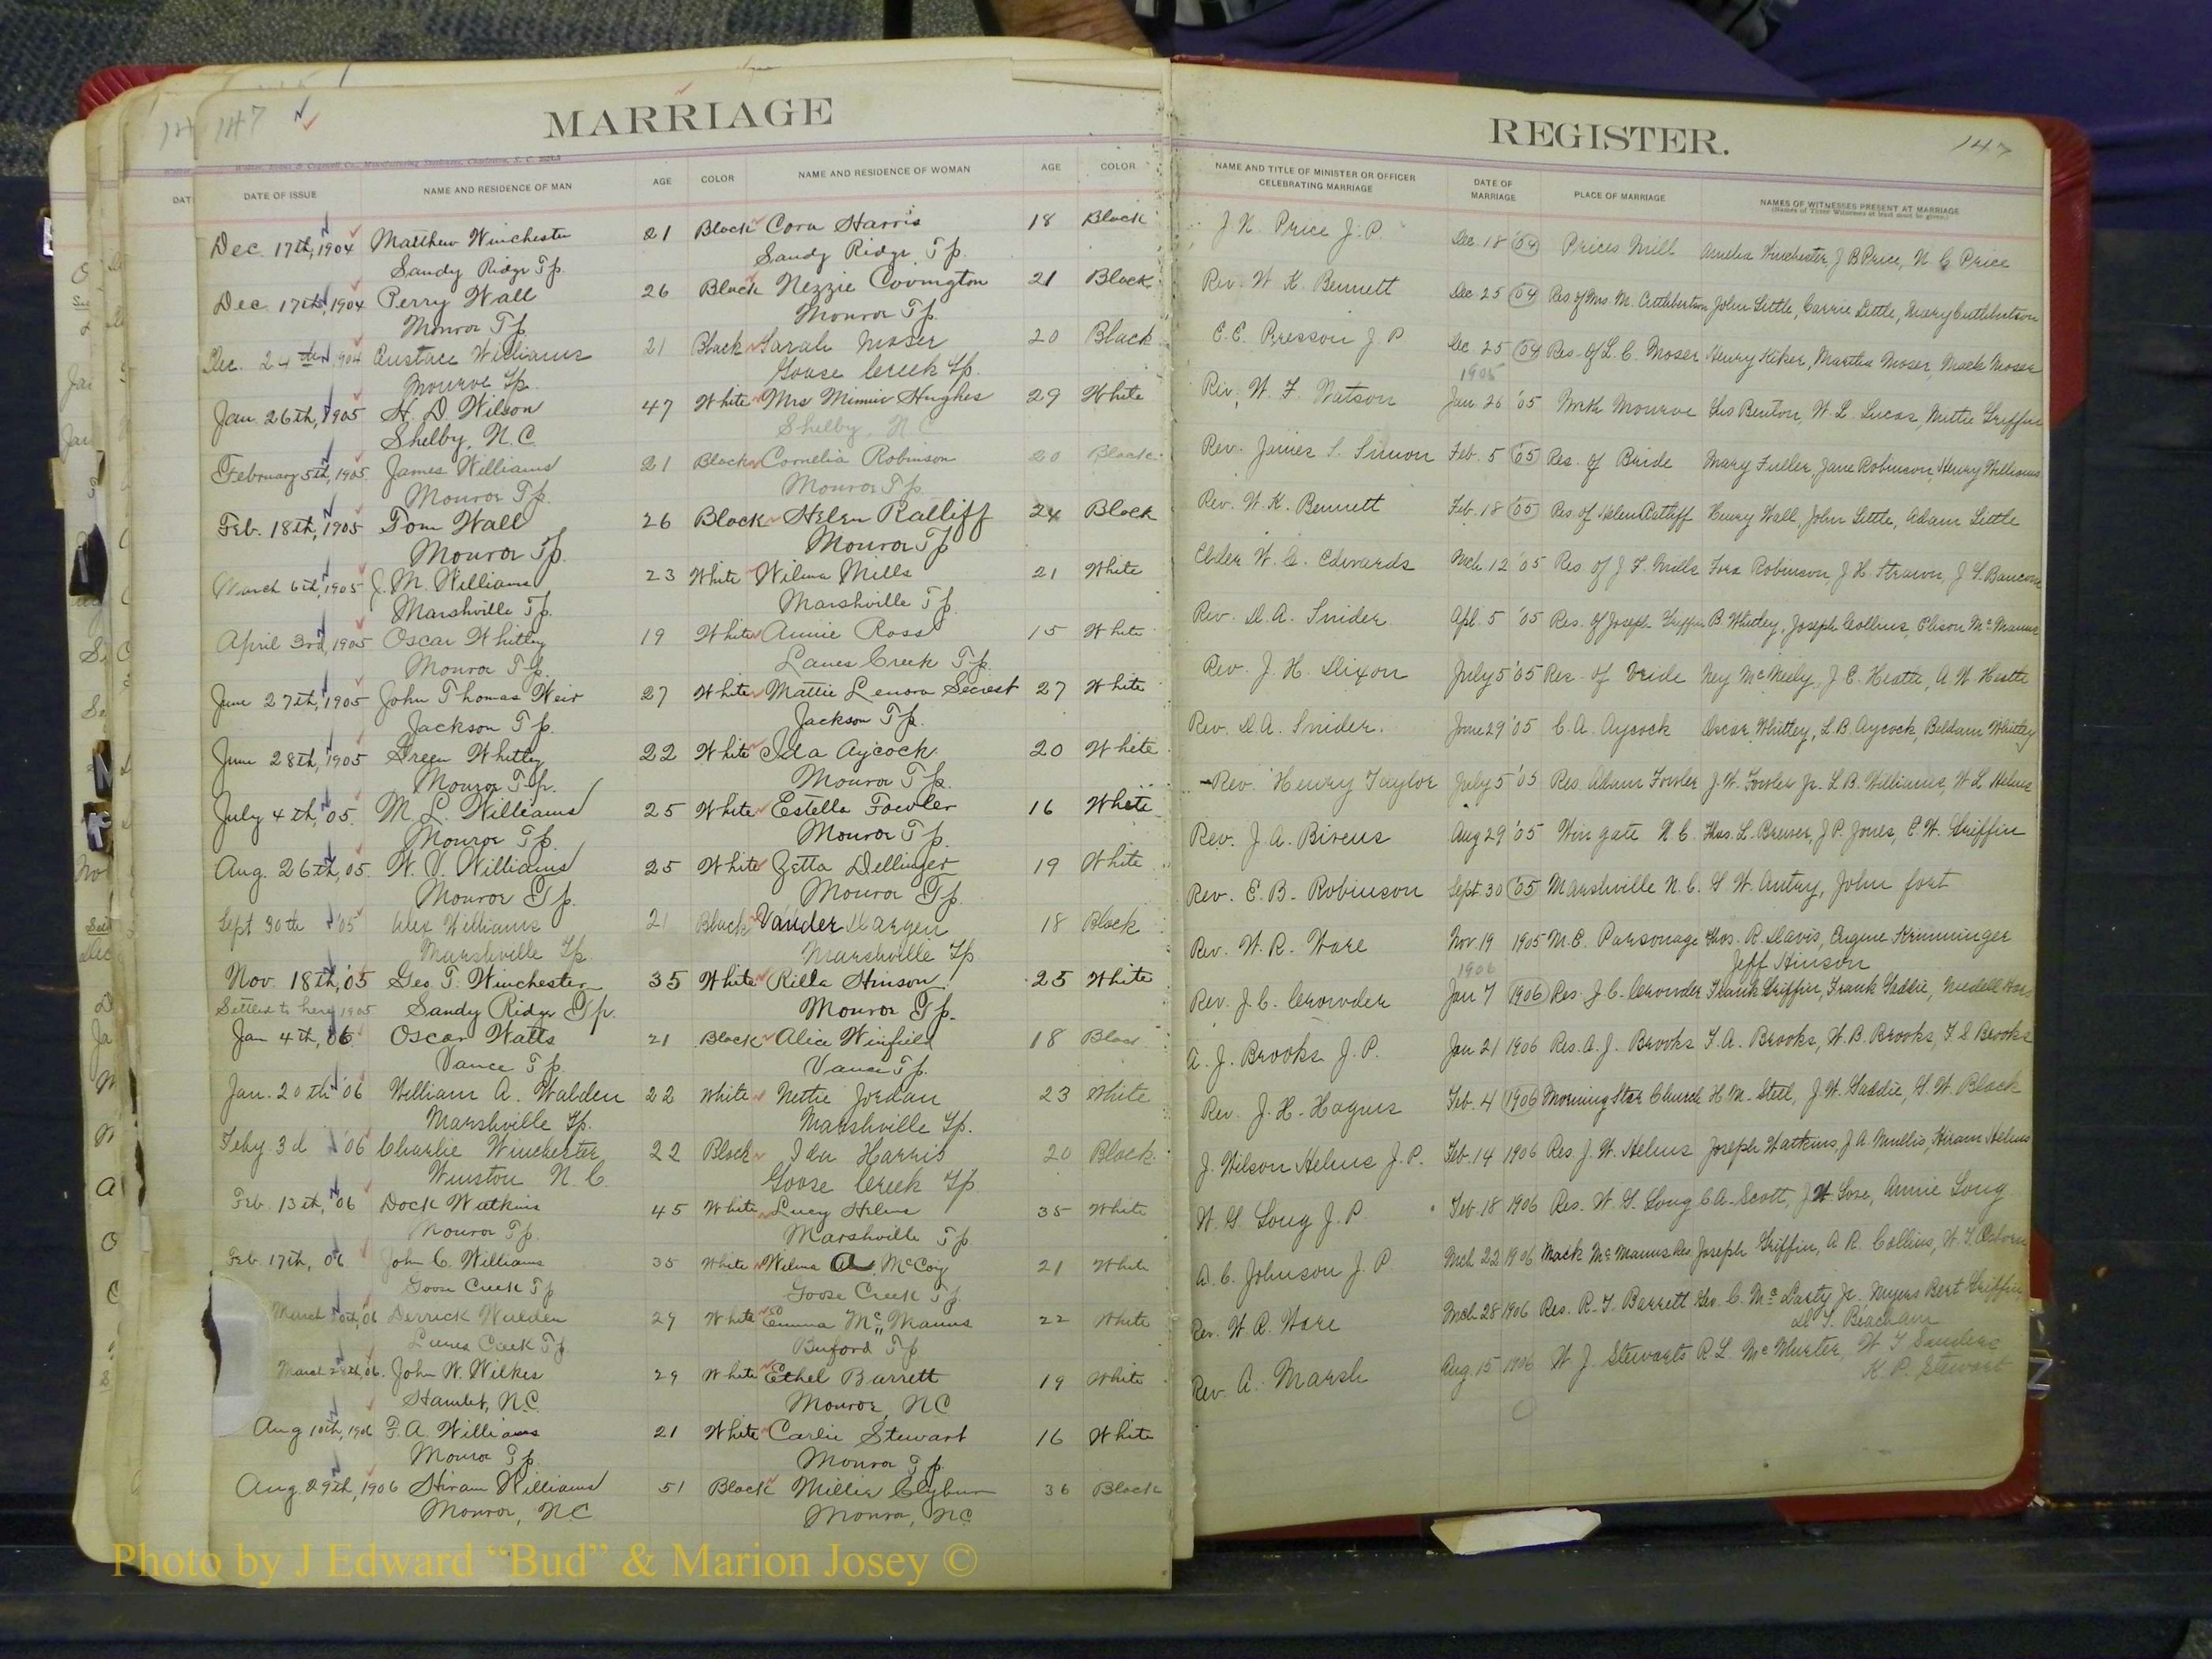 147
MARRIAGE
DATE OF ISSUE NAME AND RESIDENCE OF MAN AGE COLOR NAME AND RESIDENCE OF WOMAN AGE COLOR
Dec. 17th, 1904 Matthew Winchester 21 Black Cora Harris 18 Black
Sandy Ridge Tp. Sandy Ridge Tp.
Dec. 17th, 1904 Perry Wall 26 Black Nezzie Covington 21 Black
Monroe Tp. Monroe Tp.
Dec. 24th 1904 Eustace Williams 21 Black Sarah Moser 20 Black
Monroe Tp. Goose Creek Tp.
Jan. 26th, 1905 H. D. Wilson 47 White Mrs Minnie Hughes 29 White
Shelby, N.C. Shelby, N.C.
February 5th, 1905 James Williams 21 Black Cornelia Robinson 20 Black
Monroe Tp. Monroe Tp.
Feb. 18th, 1905 Tom Wall 26 Black Helen Ratliff 24 Black
Monroe Tp. Monroe Tp
March 6th, 1905 J. M. Williams 23 White Wilma Mills 21 White
Marshville Tp. Marshville Tp.
April 3rd, 1905 Oscar Whitley 19 White Annie Ross 15 White
Monroe Tp. Lanes Creek Tp.
June 27th, 1905 John Thomas Weir 27 White Mattie Lenora Secrest 27 White
Jackson Tp. Jackson Tp.
June 28th, 1905 Green Whitley 22 White Ida Aycock 20 White
Monroe Tp. Monroe Tp.
July 4th, '05. M. L. Williams 25 White Estella Fowler 16 White
Monroe Tp. Monroe Tp.
Aug. 26th, 05. W. V. Williams 25 White Zetta Dellinger 19 White
Monroe Tp. Monroe Tp.
Sept 30th '05 Alex Williams 21 Black Vander Dargen 18 Black
Marshville Tp. Marshville Tp.
Nov. 18th, '05 Geo. T. Winchester 35 White Rilla Hinson 25 White
Settled to here 1905 Sandy Ridge Tp. Monroe Tp.
Jan 4th, 06 Oscar Watts 21 Black Alice Winfield 18 Blac
Vance Tp. Vance Tp.
Jan. 20th '06 William A. Walden 22 White Nettie Jordan 23 White
Marshville Tp. Marshville Tp.
Feby 3d '06 Charlie Winchester 22 Black Ida Harris 20 Black
Winston N.C. Goose Creek Tp.
Feb. 13th, '06 Dock Watkins 45 White Lucy Helms 35 White
Monroe Tp. Marshville Tp
Feb. 17th, 06 John C. Williams 35 White Wilma A. McCoy 21 White
Goose Creek Tp Goose Creek Tp.
March 06 Derrick Walden 29 White Emma McManus 22 White
Lanes Creek Tp. Buford Tp
March 28th, 06. John W. Wilkes 29 White Ethel Barrett 19 White
Hamlet, N.C. Monroe, N.C.
Aug 10th, 1906 F. A. Williams 21 White Carlie Stewart 16 White
Monroe Tp. Monroe Tp.
Aug. 29th, 1906 Hiram Williams 51 Black Millie Clyburn 36 Black
Monroe, N.C. Monroe, N.C.
REGISTER.
147
NAME AND TITLE OF MINISTER OR OFFICER CELEBRATING MARRIAGE DATE OF MARRIAGE PLACE OF MARRIAGE NAMES OF WITNESSES PRESENT AT MARRIAGE
(Names of Three Witnesses at least must be given.)
J. N. Price J. P. Dec. 18 '04 Prices Mill Amelia Winchester, J B Price, N C Price
Rev. W. K. Bennett Dec. 25 04 Res of Mrs. M. Cuthbertson John Little, Carrie Little, Mary Cuthbertson
E. E. Presson J P Dec. 25 04 Res. of L. C. Moser Henry Kiker, Martha Moser, Mack Moser
1905
Rev. W. F. Watson Jan. 26 '05 North Monroe Geo Benton, W. L. Lucas, Mittie Griffin
Rev. James S. Simon Feb. 5 '05 Res. of Bride Mary Fuller, Jane Robinson, Henry Williams
Rev. W. K. Bennett Feb. 18 '05 Res. of Helen Ratliff Henry Wall, John Little, Adam Little
Elder W. C. Edwards Mch. 12 '05 Res of J. F. Mills Fora Robinson, J. H. Strawn, J. S. Bancom
Rev. D. A. Snider Apl. 5 '05 Res. of Joseph Griffin B. Whitley, Joseph Collins, Elison McManus
Rev. J. H. Dixon July 5 '05 Res. of Bride Ney McNeely, J. E. Heath, A. W. Heath
Rev. D. A. Snider. June 29 '05 C. A. Aycock Oscar Whitley, L. B. Aycock, Whitley
Rev. Henry Taylor July 5 '05 Res. Adam Fowler J. W. Fowler Jr. L. B. Williams, W. L. Helms
Rev. J. A. Bivens Aug 29 '05 Wingate N. C. Thos. L. Brewer, J. P. Jones, E. W. Griffin
Rev. E. B. Robinson Sept. 30 '05 Marshville N. C. G. W. Autry, John fort
Rev. W. R. Ware Nov. 19 1905 M. E. Parsonage Thos. R. Davis, Eugene Krimminger
Jeff Hinson
1906
Rev. J. C. Crowder Jan 7 1906 Res. J. C. Crowder Frank Griffin, Frank Gaddie,
A. J. Brooks J. P. Jan 21 1906 Res. A. J. Brooks T. A. Brooks, W. B. Brooks, F. S Brooks
Rev. J. H. Hagins Feb. 4 1906 Morning Star Church H. M. Steel, J. W. Gaddie, G. W. Black
J. Wilson Helms J. P. Feb. 14 1906 Res. J. W. Helms Joseph Watkins, J. A. Mullis, Hiram Helms
W. G. Long J. P. Feb. 18 1906 Res. W. G. Long C A. Scott, J W Love, Annie Long
A. C. Johnson J. P. Mch 22 1906 Mack McManus Res. Joseph Griffin, A. R. Collins, W. T. Osborn
Rev. W. R. Ware Mch 28 1906 Res. R. T. Barrett Geo. C. McLarty Jr. Myers Bert Griffin
D. T. Beacham
Rev. A. Marsh Aug. 15 1906 W J. Stewarts R. L. McWhirter, W T Sanders
K. P. Stewart
Photo by J Edward “Bud” & Marion Josey ©